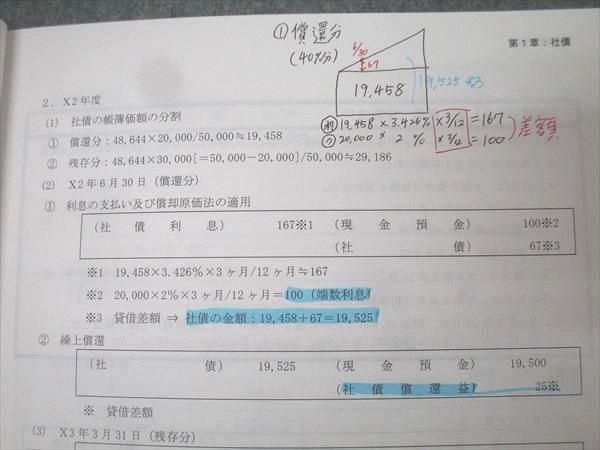 第1章:社債
①償還分
(40%分)
6/30
67
19,458
19,525 ※3
㋑ 19,458 × 3.426% × 3/12 = 167
㋗ 20,000 × 2 % × 3/12 = 100
差額
2. X2年度
(1) 社債の帳簿価額の分割
① 償還分:48,644×20,000/50,000≒19,458
② 残存分:48,644×30,000[=50,000-20,000]/50,000≒29,186
(2) X2年6月30日(償還分)
① 利息の支払い及び償却原価法の適用
(社債利息) 167※1 (現金預金) 100※2
(社債) 67※3
※1 19,458×3.426%×3ヶ月/12ヶ月≒167
※2 20,000×2%×3ヶ月/12ヶ月=100(端数利息)
※3 貸借差額 ⇒ 社債の金額:19,458+67=19,525
② 繰上償還
(社債) 19,525 (現金預金) 19,500
(社債償還益) 25※
※ 貸借差額
(3) X3年3月31日(残存分)